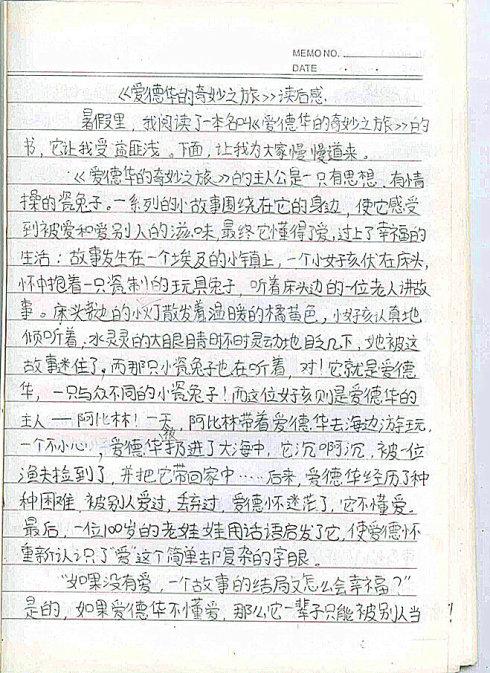 MEMO NO.
DATE
《爱德华的奇妙之旅》读后感
暑假里，我阅读了一本名叫《爱德华的奇妙之旅》的
书，它让我受益匪浅。下面，让我为大家慢慢道来。
《爱德华的奇妙之旅》的主人公是一只有思想、有情
操的瓷兔子。一系列的小故事围绕在它的身边，使它感受
到被爱和爱别人的滋味，最终它懂得了爱，过上了幸福的
生活：故事发生在一个埃及的小镇上，一个小女孩伏在床头，
怀中抱着一只瓷制的玩具兔子，听着床头边的一位老人讲故
事。床头边的小灯散发着温暖的橘黄色，小女孩认真地
倾听着，水灵灵的大眼睛时不时灵动地眨几下，她被这
故事迷住了，而那只小瓷兔子也在听着，对！它就是爱德
华，一只与众不同的小瓷兔子！而这位女孩则是爱德华的
主人——阿比林！一天，阿比林带着爱德华去海边游玩，
一个不小心，爱德华被扔进了大海中，它沉啊沉，被一位
渔夫捡到了，并把它带回家中……后来，爱德华经历了种
种困难，被别人爱过，丢弃过，爱德怀迷茫了，它不懂爱。
最后，一位100岁的老娃娃用话语启发了它，使爱德怀
重新认识了“爱”这个简单却复杂的字眼。
“如果没有爱，一个故事的结局又怎么会幸福？”
是的，如果爱德华不懂爱，那么它一辈子只能被别人当